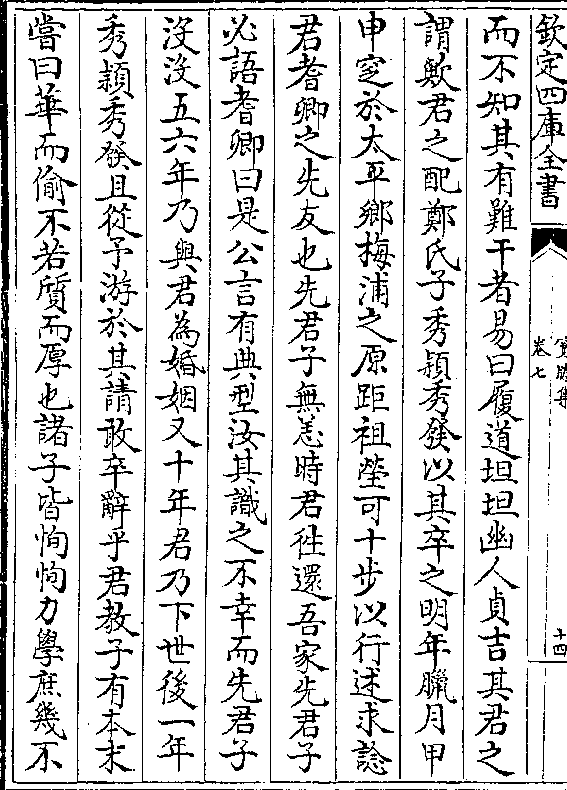 欽定四庫全書
卷七
十四
而不知其有難干者易曰履道坦坦幽人貞吉其君之
謂歟君之配鄭氏子秀穎秀發以其卒之明年臘月甲
申窆於太平鄉梅浦之原距祖塋可十步以行述求諗
君耆卿之先友也先君子無恙時君往還吾家先君子
必語耆卿曰是公言有典型汝其識之不幸而先君子
沒沒五六年乃與君為婚姻又十年君乃下世後一年
秀穎秀發且從予游於其請敢卒辭乎君教子有本末
嘗曰華而偷不若質而厚也諸子皆恂恂力學庶幾不